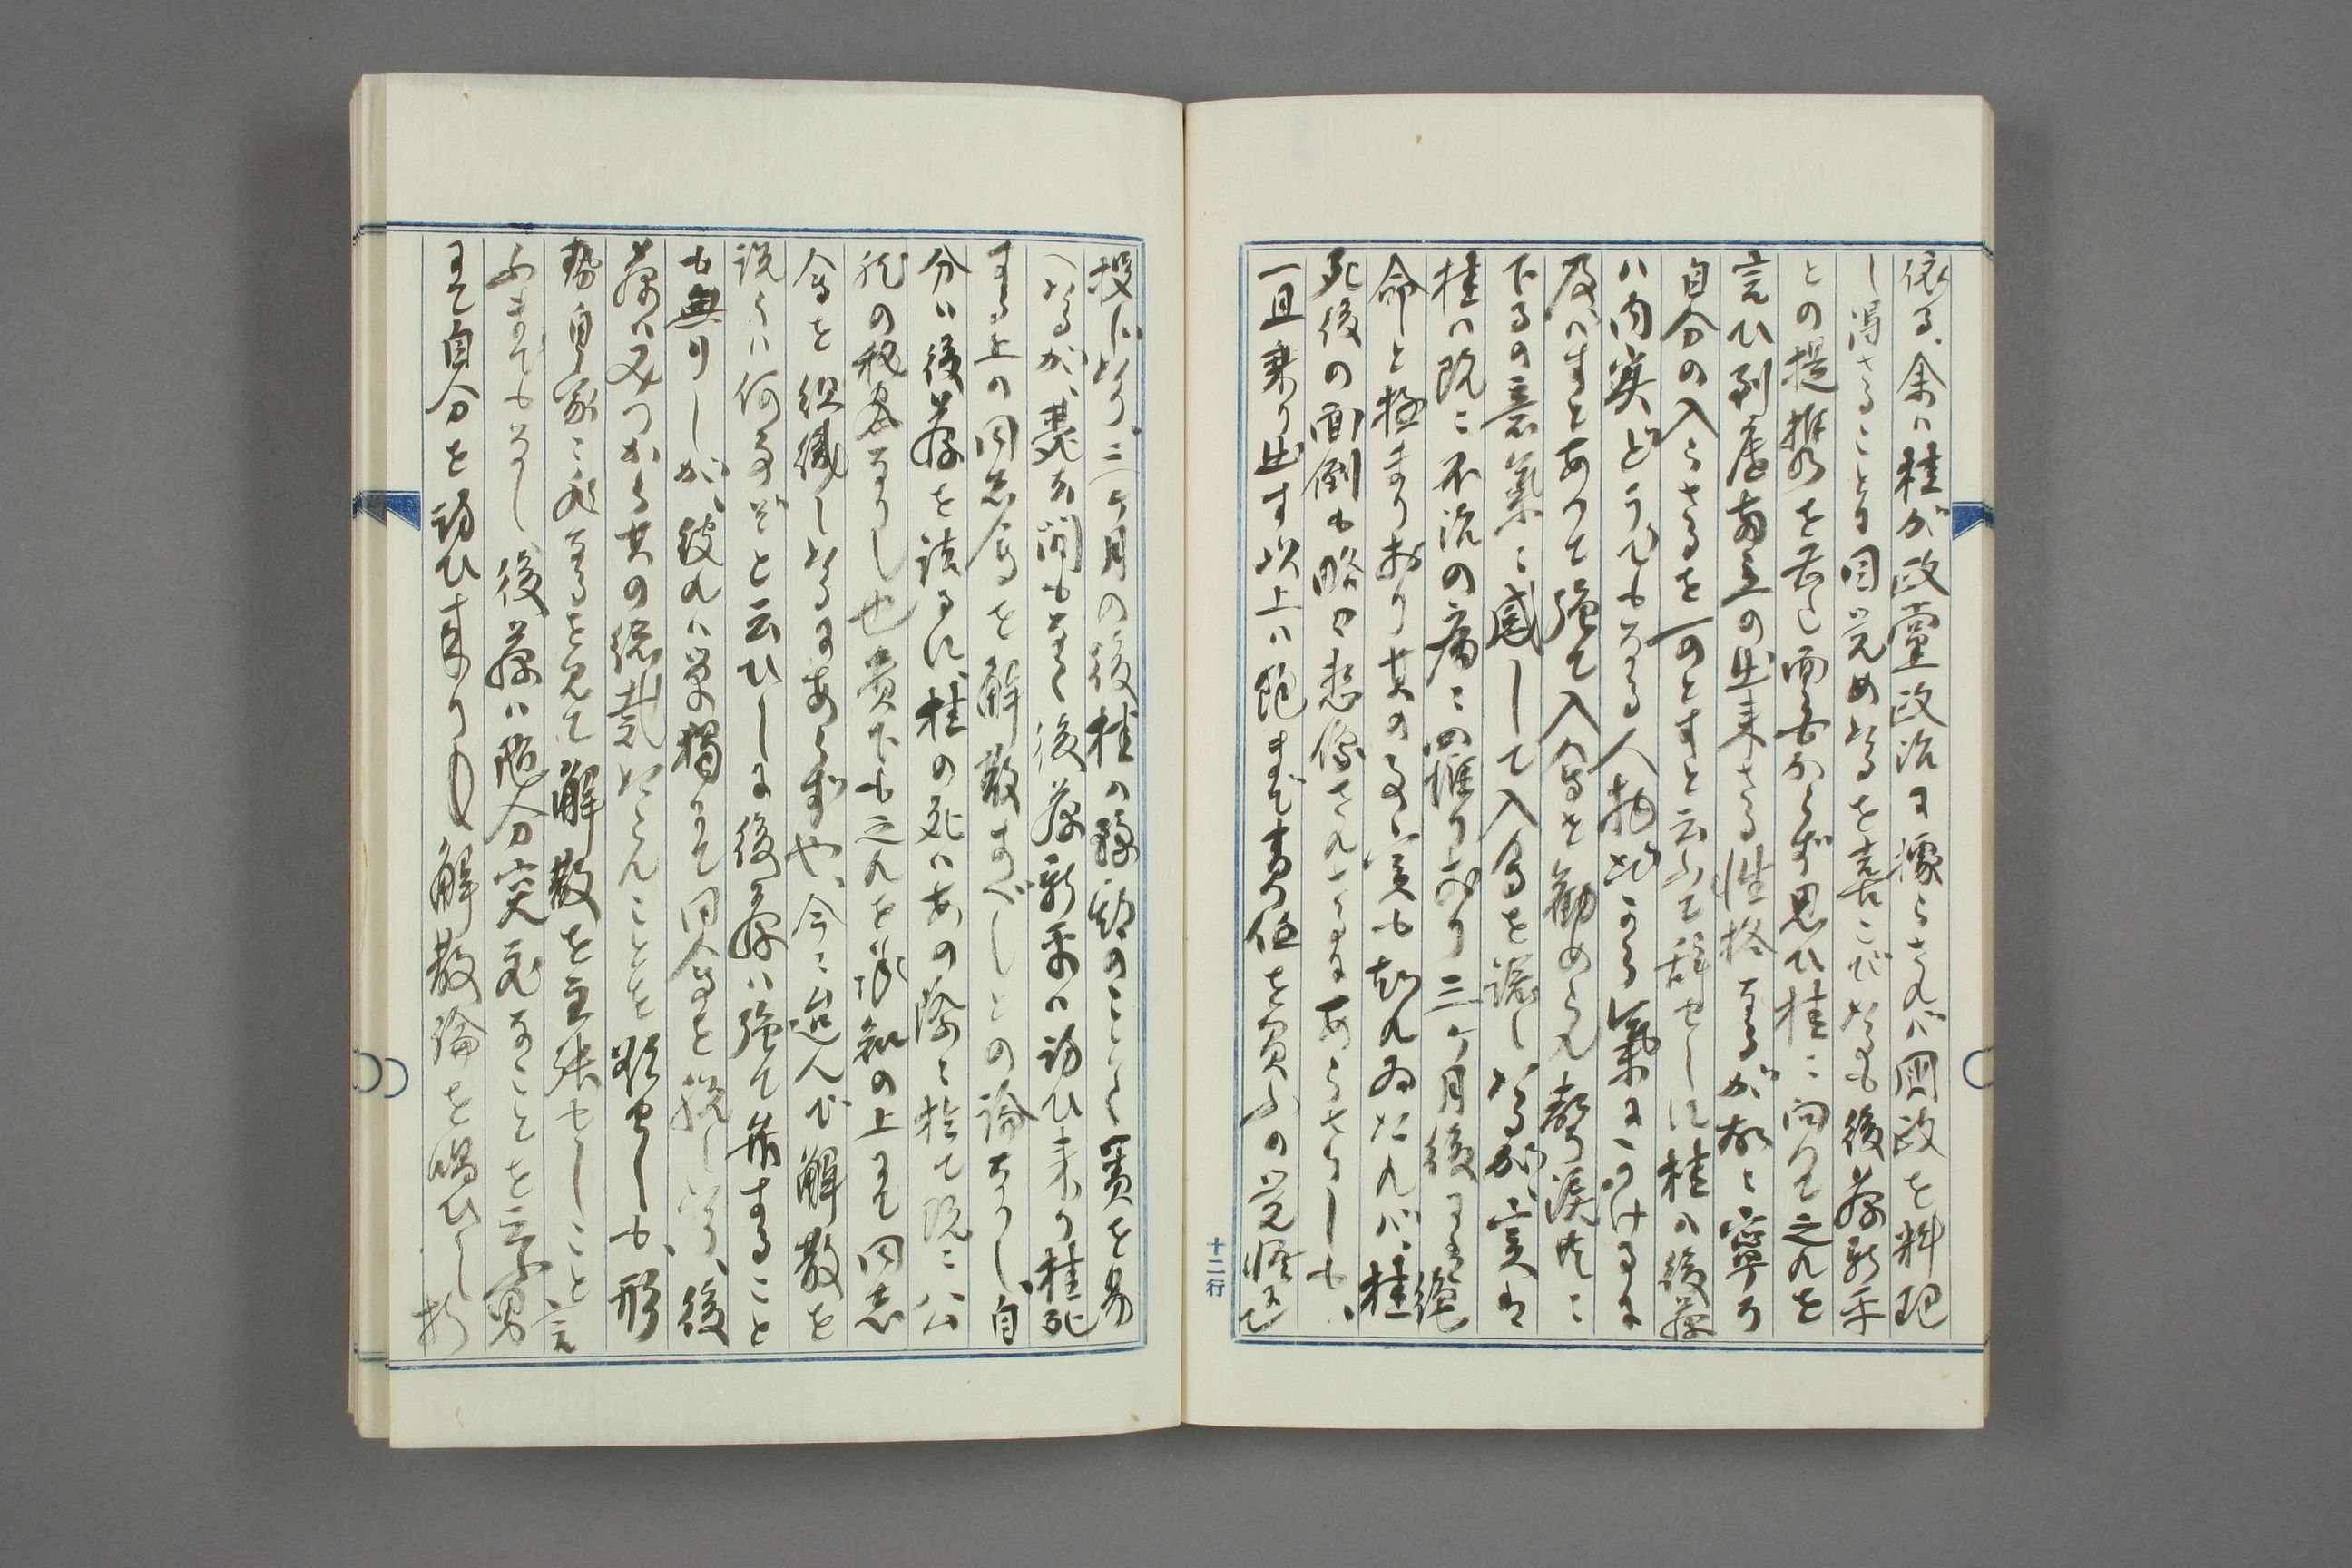 依る、余ハ桂が政黨政治に據らされバ國政を料理
し得さることに目覚めたるを喜こびたるも後藤新平
との提携を若し面白からず思ひ桂に向つて之れを
言ひ到底両立の出来さる性格なるが故に寧ろ
自分の入らさるを可とすと云ふて辞せしに桂ハ後藤
ハ内実どうでもなる人物だ
及ハすとあつて強て入会を勧めらる
下るの意氣に感して入会を諾したるが、実は
桂ハ既に不治の病に罹りおり三ヶ月後には絶
命と極まりおり其の事実も知れゐたれバ、桂
死後の面倒も略々想像されさるにあらさりしも、
一旦乗り出す以上ハ飽まで責任を負ふの覚悟にて
投じたり、二ヶ月の後桂の薨去のことゝ簀を易
へたるが、葬去間もなく後藤新平ハ訪ひ来り桂死
する上ハ同志会を解散すべしとの論なりし、自
分ハ後藤を詰るに、桂の死ハあの際に於て既に公
然の秘密なりし也貴下も之れを承知の上にて同志
会を組織したるにあらずや、今に迨んで解散を
説くハ何事ぞと云ひしに後藤ハ強て弁すること
も無りしが、彼れハ単獨にて同人会を脱したり、後
藤ハ又つから其の総裁たらんことを欲せしも、形
勢自家に非なるを見て解散を主張せしこと言
ふまでもなし 後藤ハ随分突飛なことを云ふ男
にて自分を訪ひ来りし 解散論を唱ひし折
十二行